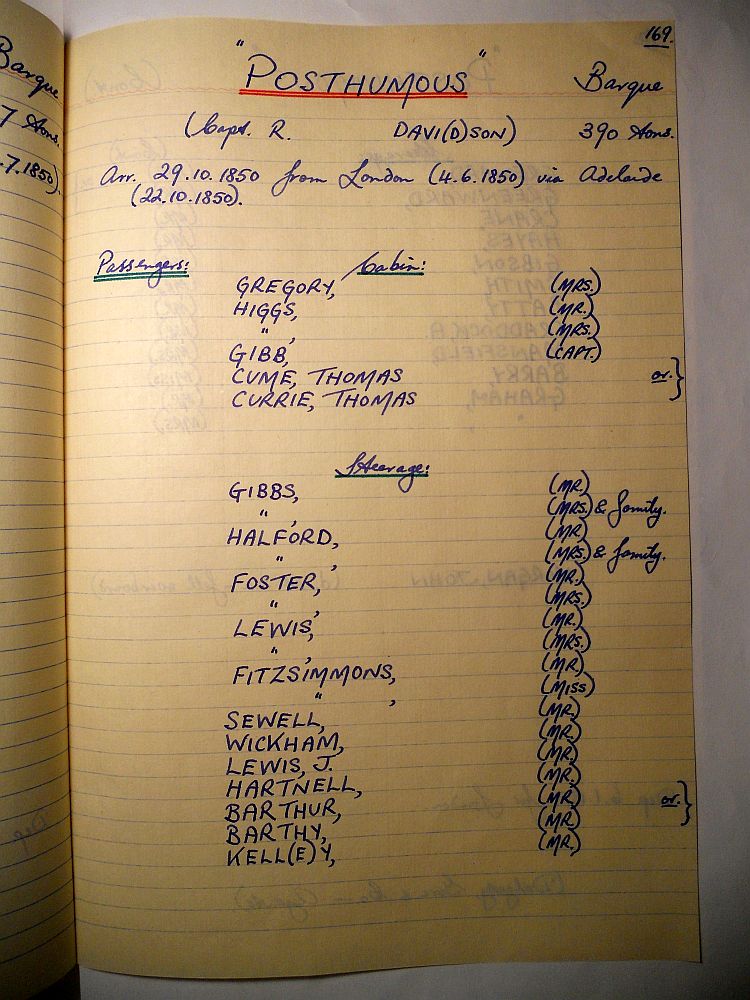 169.
"POSTHUMOUS" Barque
(Capt. R. DAVI(D)SON) 390 tons.
Arr. 29.10.1850 from London (4.6.1850) via Adelaide
(22.10.1850).
Passengers: Cabin:
GREGORY, (MRS.)
HIGGS, (MR.)
" , (MRS.)
GIBB, (CAPT.)
CUME, THOMAS
CURRIE, THOMAS or. }
Steerage:
GIBBS, (MR.)
" , (MRS.) & family.
HALFORD, (MR)
" , (MRS.) & family.
FOSTER, (MR.)
" , (MRS.)
LEWIS, (MR.)
" , (MRS.)
FITZSIMMONS, (MR)
" , (MISS)
SEWELL, (MR.)
WICKHAM, (MR.)
LEWIS, J. (MR.)
HARTNELL, (MR.)
BARTHUR, (MR.) or. }
BARTHY, (MR.)
KELL(E)Y, (MR.)
Barque
7 tons.
.7.1850).